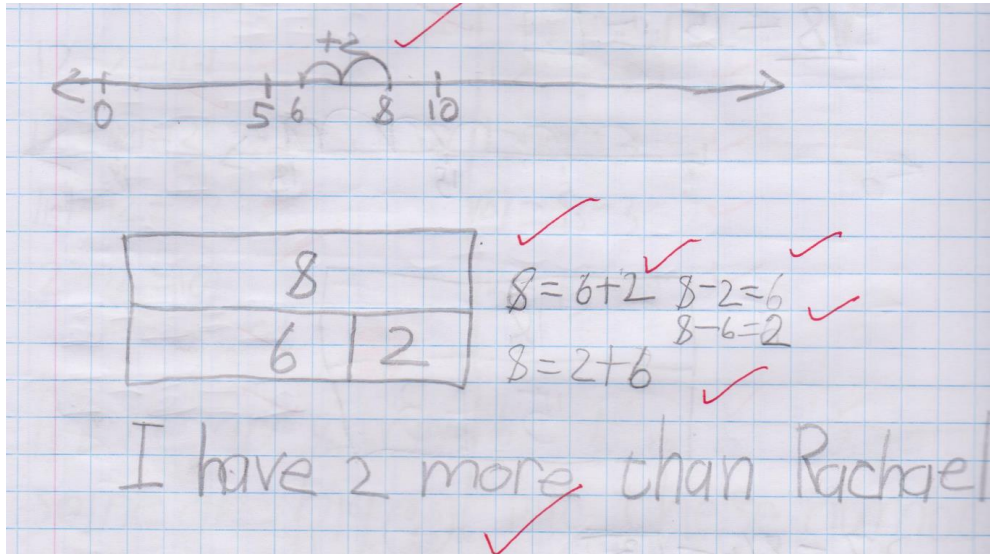 +2
0 5 6 8 10
8
6 2
8=6+2 8-2=6
8-6=2
8=2+6
I have 2 more than Rachael